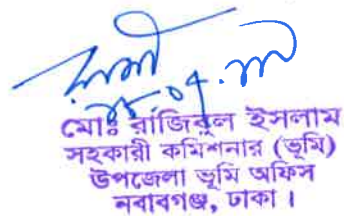 মোঃ রাজিবুল ইসলাম
সহকারী কমিশনার (ভূমি)
উপজেলা ভূমি অফিস
নবাবগঞ্জ, ঢাকা।